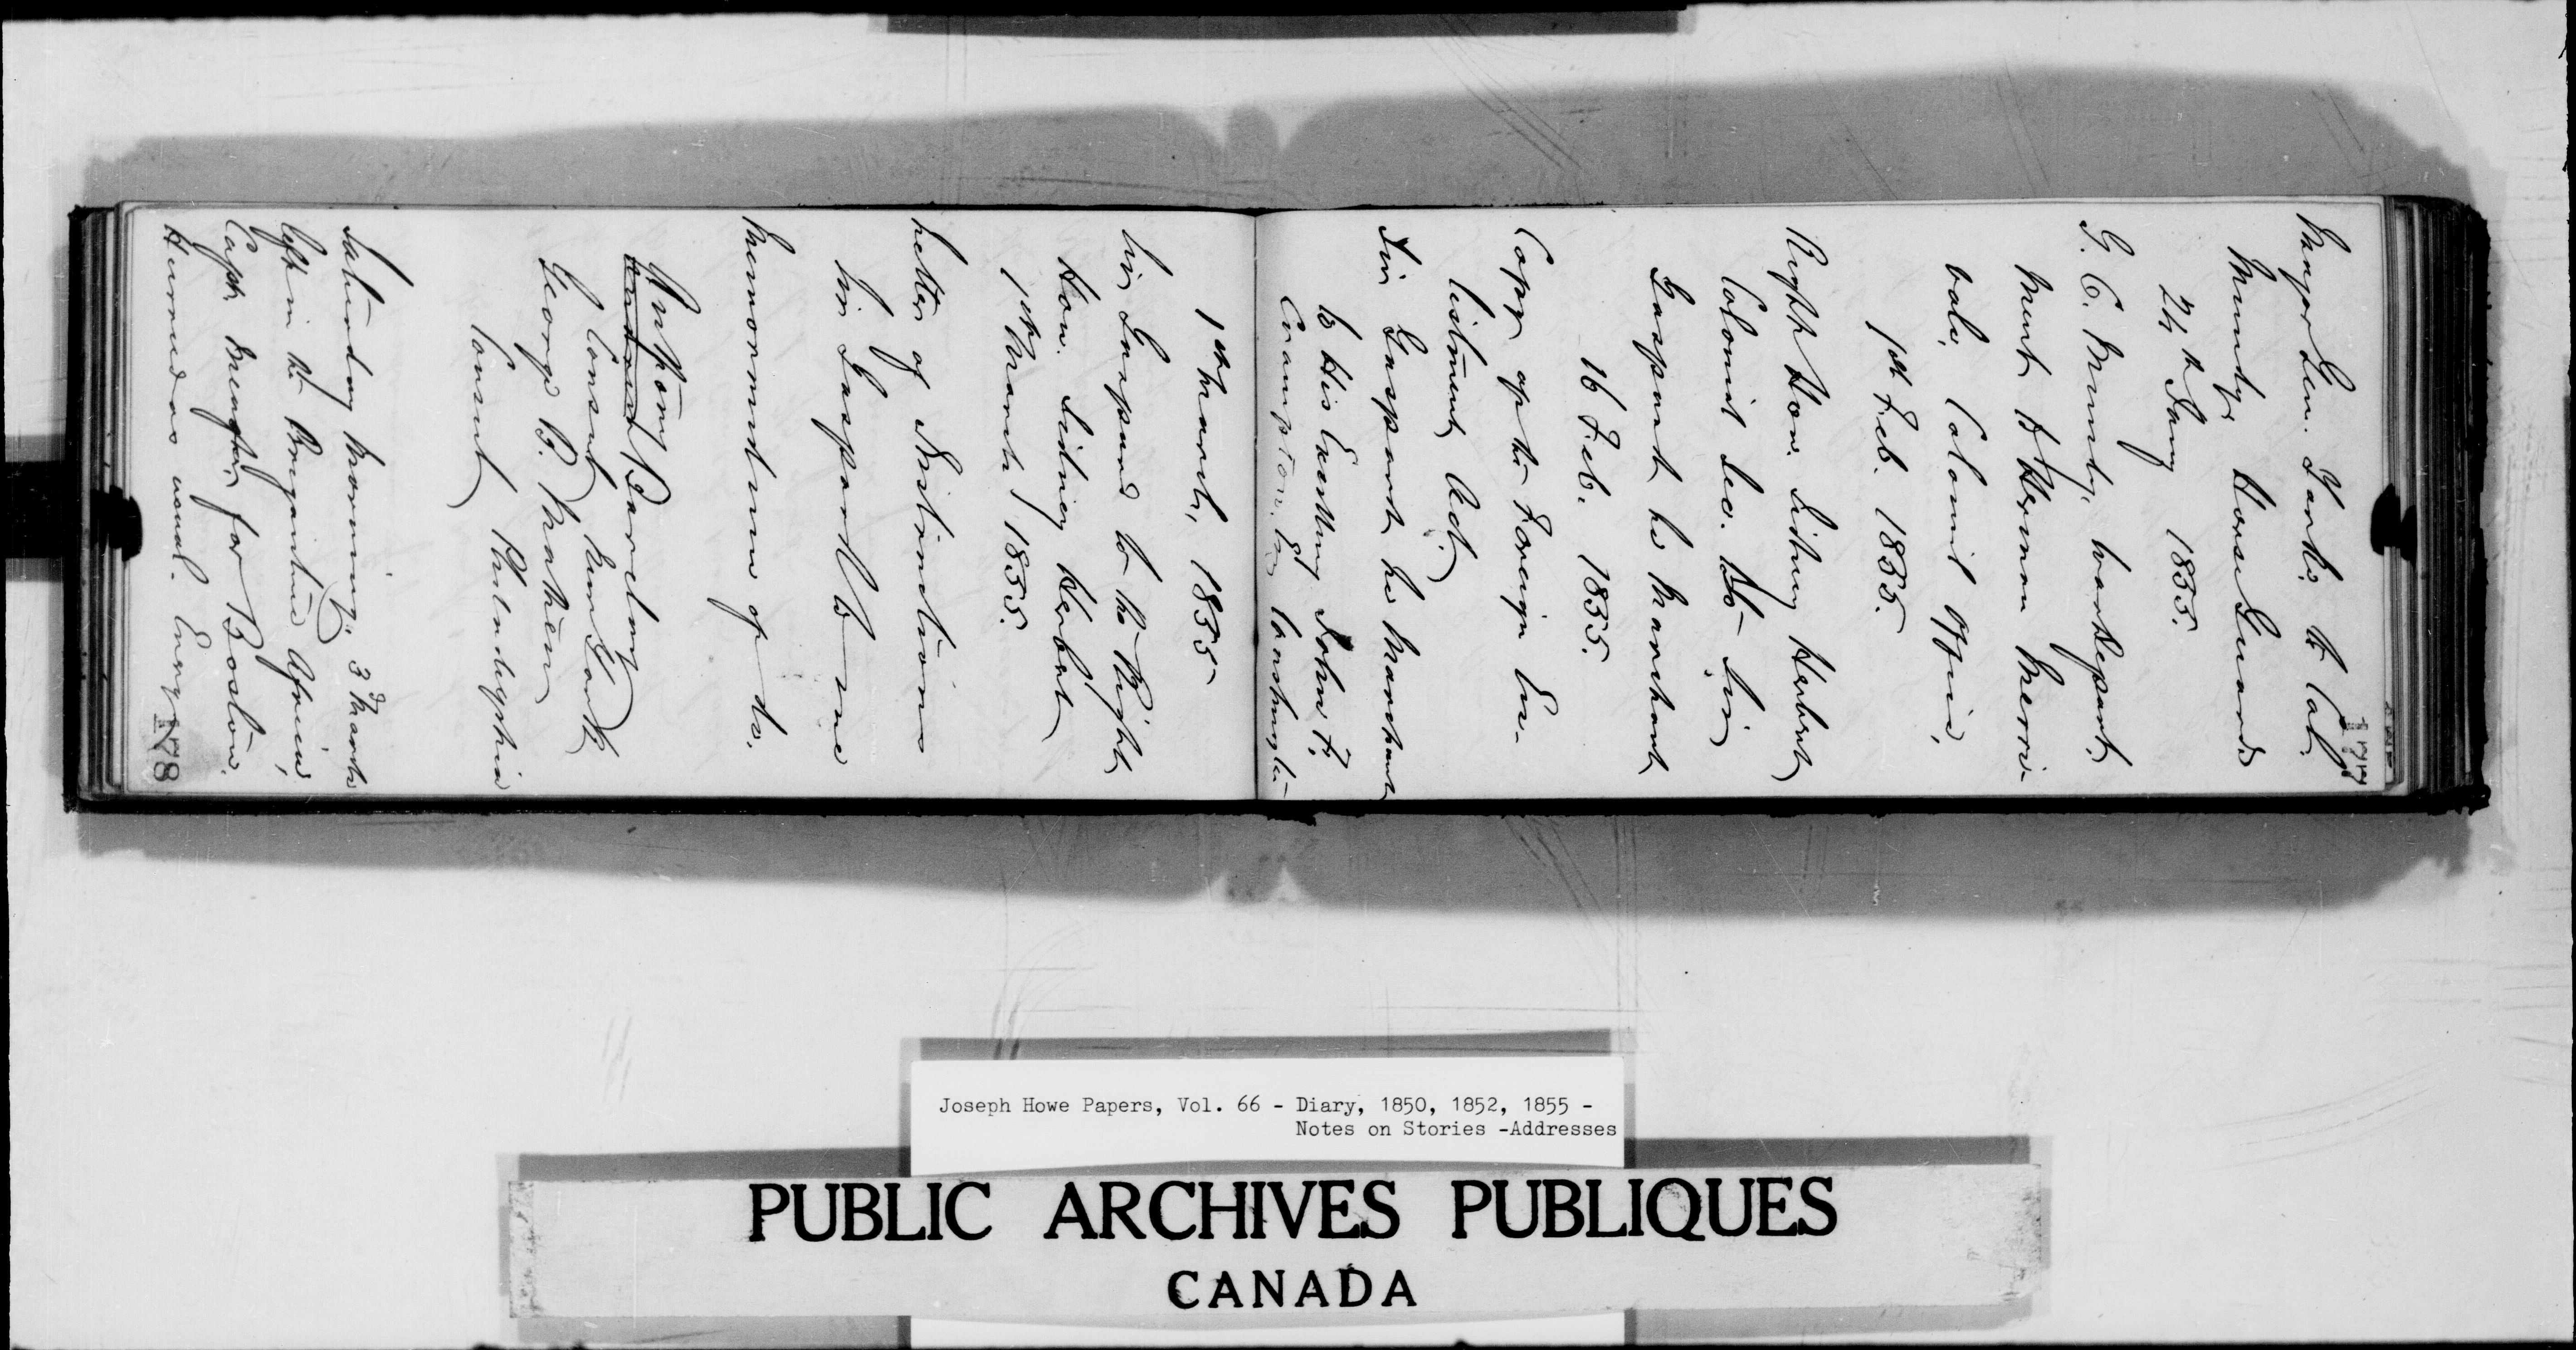 177
Major Gen. Yorke to Col.
Mundy, Horse Guards
24th Jany 1855.
G. C. Mundy, War Depart,
ment to Herman Meri-
vale, Colonial Office,
1st Feb. 1855.
Right Hon. Sidney Herbert
Colonial Sec. to Sir
Gaspard Le Marchant
16 Feb. 1855.
Copy of the Foreign En-
listment Act.
Sir Gaspard Le Marchant
to His Excellency John F.
Crampton, Washington
1st March, 1855
Sir Gaspard to the Right
Hon. Sidney Herbert
1st March 1855.
Letter of Instructions
Sir Gaspard to me
Memorandum of do.
Anthony Barclay
Consul New York
George B. Mathew
Consul Philadelphia
Saturday Morning, 3d March
left in the Brigantine Africa,
Capt. Meagher for Boston.
Hurried as usual.
178
Joseph Howe Papers, Vol. 66 - Diary, 1850, 1852, 1855 -
Notes on Stories -Addresses
PUBLIC ARCHIVES PUBLIQUES
CANADA